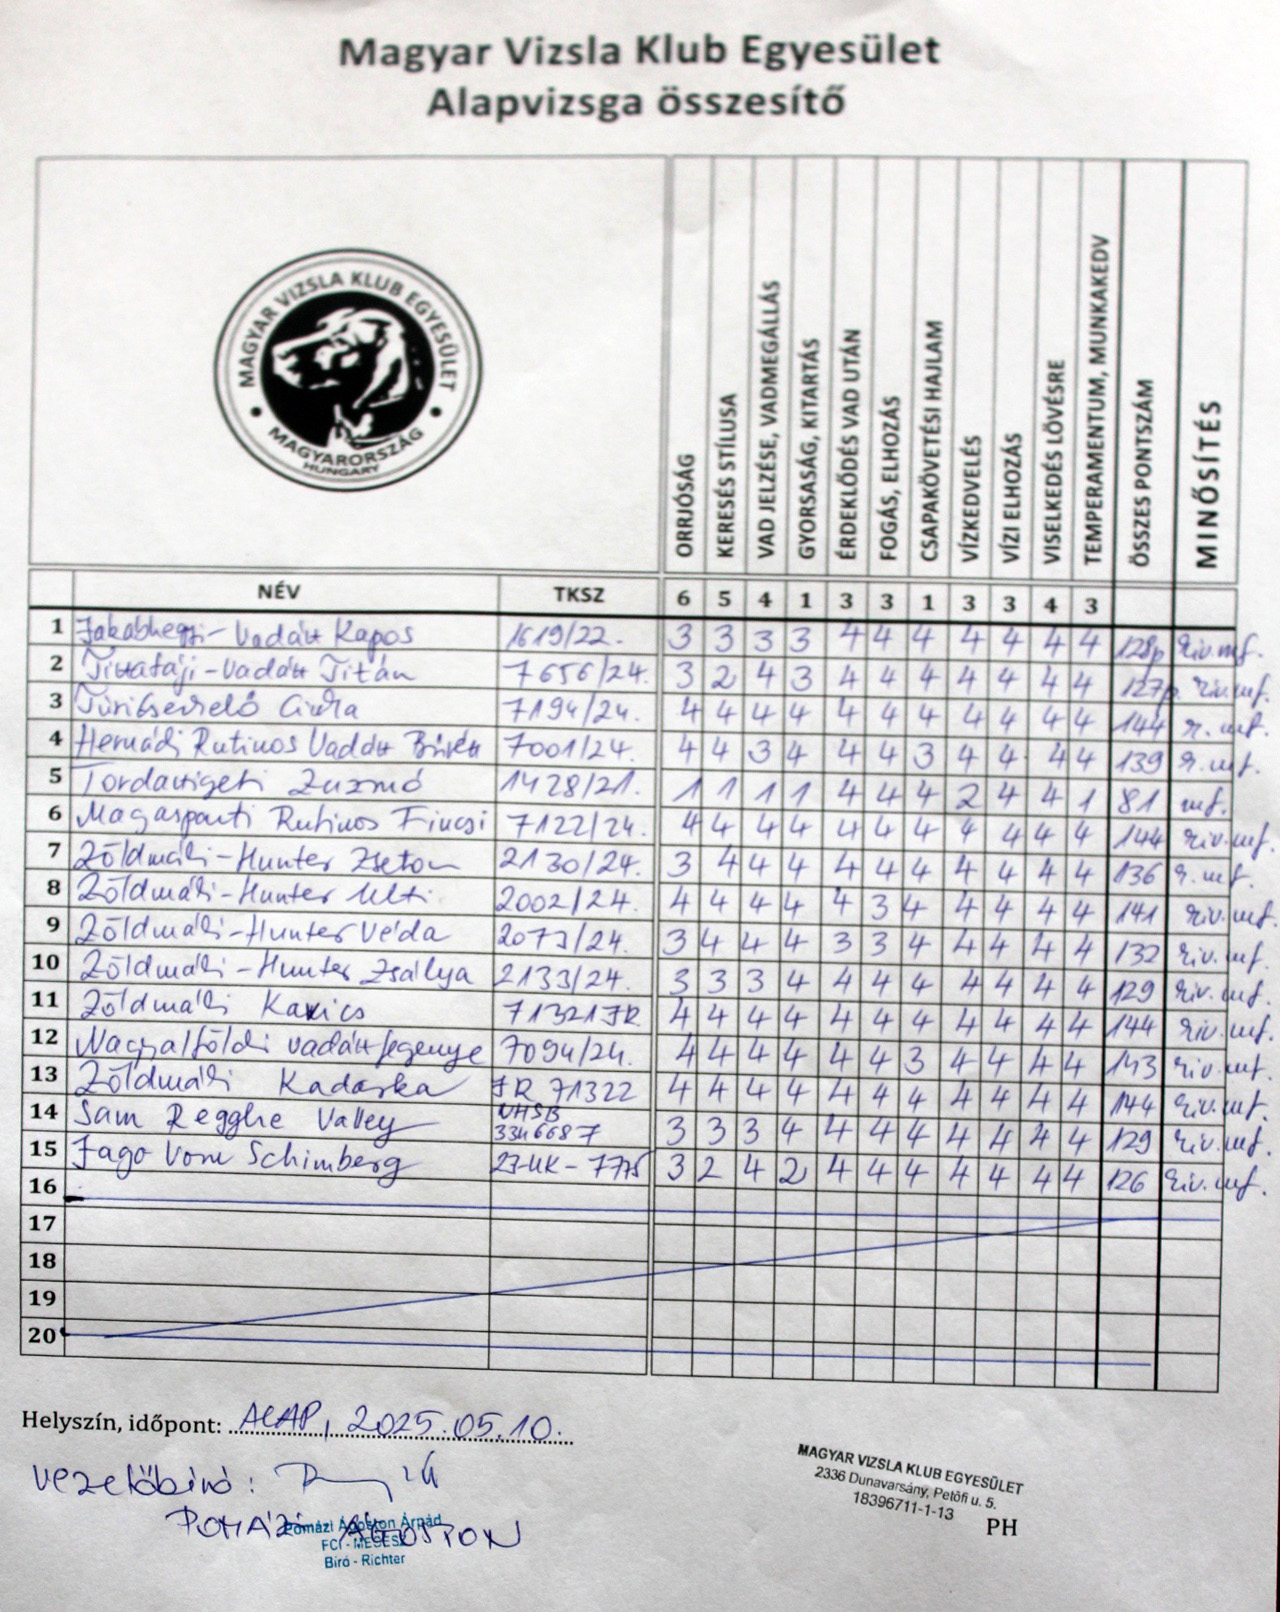 Magyar Vizsla Klub Egyesület
Alapvizsga összesítő
MAGYAR VIZSLA KLUB EGYESÜLET
MAGYARORSZÁG
HUNGARY
ORRJÓSÁG
KERESÉS STÍLUSA
VAD JELZÉSE, VADMEGÁLLÁS
GYORSASÁG, KITARTÁS
ÉRDEKLŐDÉS VAD UTÁN
FOGÁS, ELHOZÁS
CSAPAKÖVETÉSI HAJLAM
VÍZKEDVELÉS
VÍZI ELHOZÁS
VISELKEDÉS LÖVÉSRE
TEMPERAMENTUM, MUNKAKEDV
ÖSSZES PONTSZÁM
MINŐSÍTÉS
NÉV TKSZ 6 5 4 1 3 3 1 3 3 4 3
1 Jakabhegyi-Vadász Kapos 1619/22. 3 3 3 3 4 4 4 4 4 4 4 128p riv.mf.
2 Tiszatáji-Vadász Titán 7656/24. 3 2 4 3 4 4 4 4 4 4 4 127p. riv.mf.
3 7194/24. 4 4 4 4 4 4 4 4 4 4 4 144 r.mf.
4 Hernádi Rutinos Vadász 7001/24. 4 4 3 4 4 4 3 4 4 4 4 139 r.mf.
5 Zuzmó 1428/21. 1 1 1 1 4 4 4 2 4 4 1 81 mf.
6 Magasparti Rutinos Fincsi 7122/24. 4 4 4 4 4 4 4 4 4 4 4 144 riv.mf.
7 Zöldmáli-Hunter Zseton 2130/24. 3 4 4 4 4 4 4 4 4 4 4 136 r.mf.
8 Zöldmáli-Hunter Ulti 2002/24. 4 4 4 4 4 3 4 4 4 4 4 141 riv.mf.
9 Zöldmáli-Hunter Véda 2073/24. 3 4 4 4 3 3 4 4 4 4 4 132 riv.mf.
10 Zöldmáli-Hunter Zsálya 2133/24. 3 3 3 4 4 4 4 4 4 4 4 129 riv.mf.
11 Zöldmáli Kavics 71321JR. 4 4 4 4 4 4 4 4 4 4 4 144 riv.mf.
12 Nagyalföldi vadász Legénye 7094/24. 4 4 4 4 4 4 3 4 4 4 4 143 riv.mf.
13 Zöldmáli Kadarka JR 71322 4 4 4 4 4 4 4 4 4 4 4 144 riv.mf.
14 Sam Regghe Valley NHSB 3346687 3 3 3 4 4 4 4 4 4 4 4 129 riv.mf.
15 Fago Vom Schimberg 23-UK-7775 3 2 4 2 4 4 4 4 4 4 4 126 riv.mf.
16
17
18
19
20
Helyszín, időpont: ALAP, 2025.05.10.
vezetőbíró:
POMÁZI ÁGOSTON
Pomázi Ágoston Árpád
FCI - MEOESZ
Bíró - Richter
MAGYAR VIZSLA KLUB EGYESÜLET
2336 Dunavarsány, Petőfi u. 5.
18396711-1-13
PH